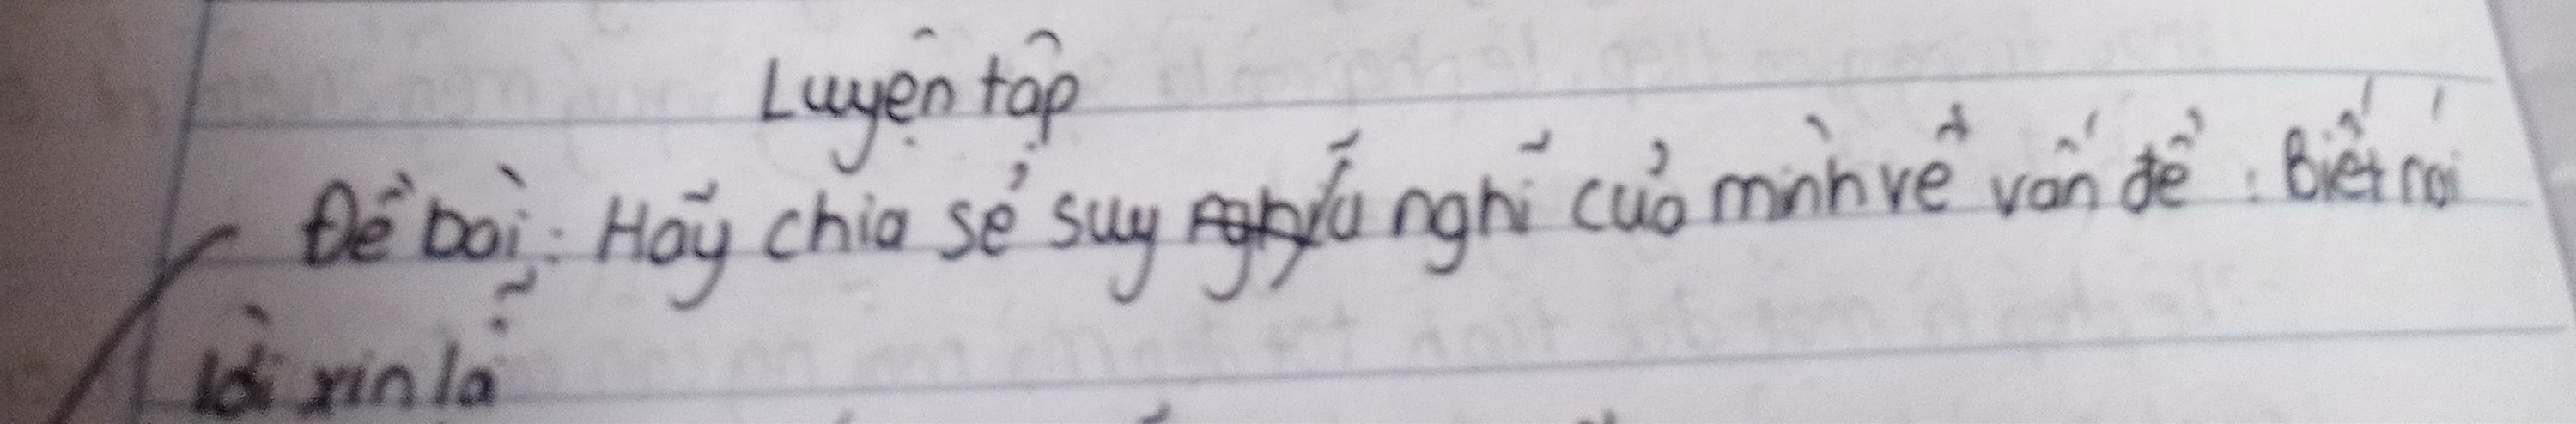 Luyện tập
Đề bài: Hãy chia sẻ suy nghĩ của mình về vấn đề: Biết nói
lời xin lỗi